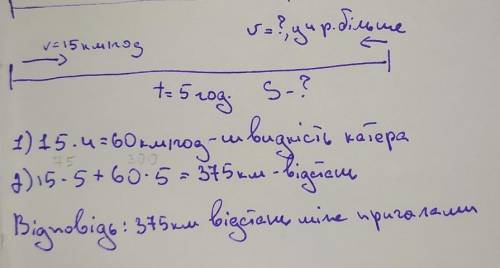 v=?, у 4 р. більше
v=15км/год
t=5 год. S-?
1) 15·4=60км/год-швидкість катера
75 300
2) 15·5+60·5=375км-відстань
Відповідь: 375км відстань між причалами